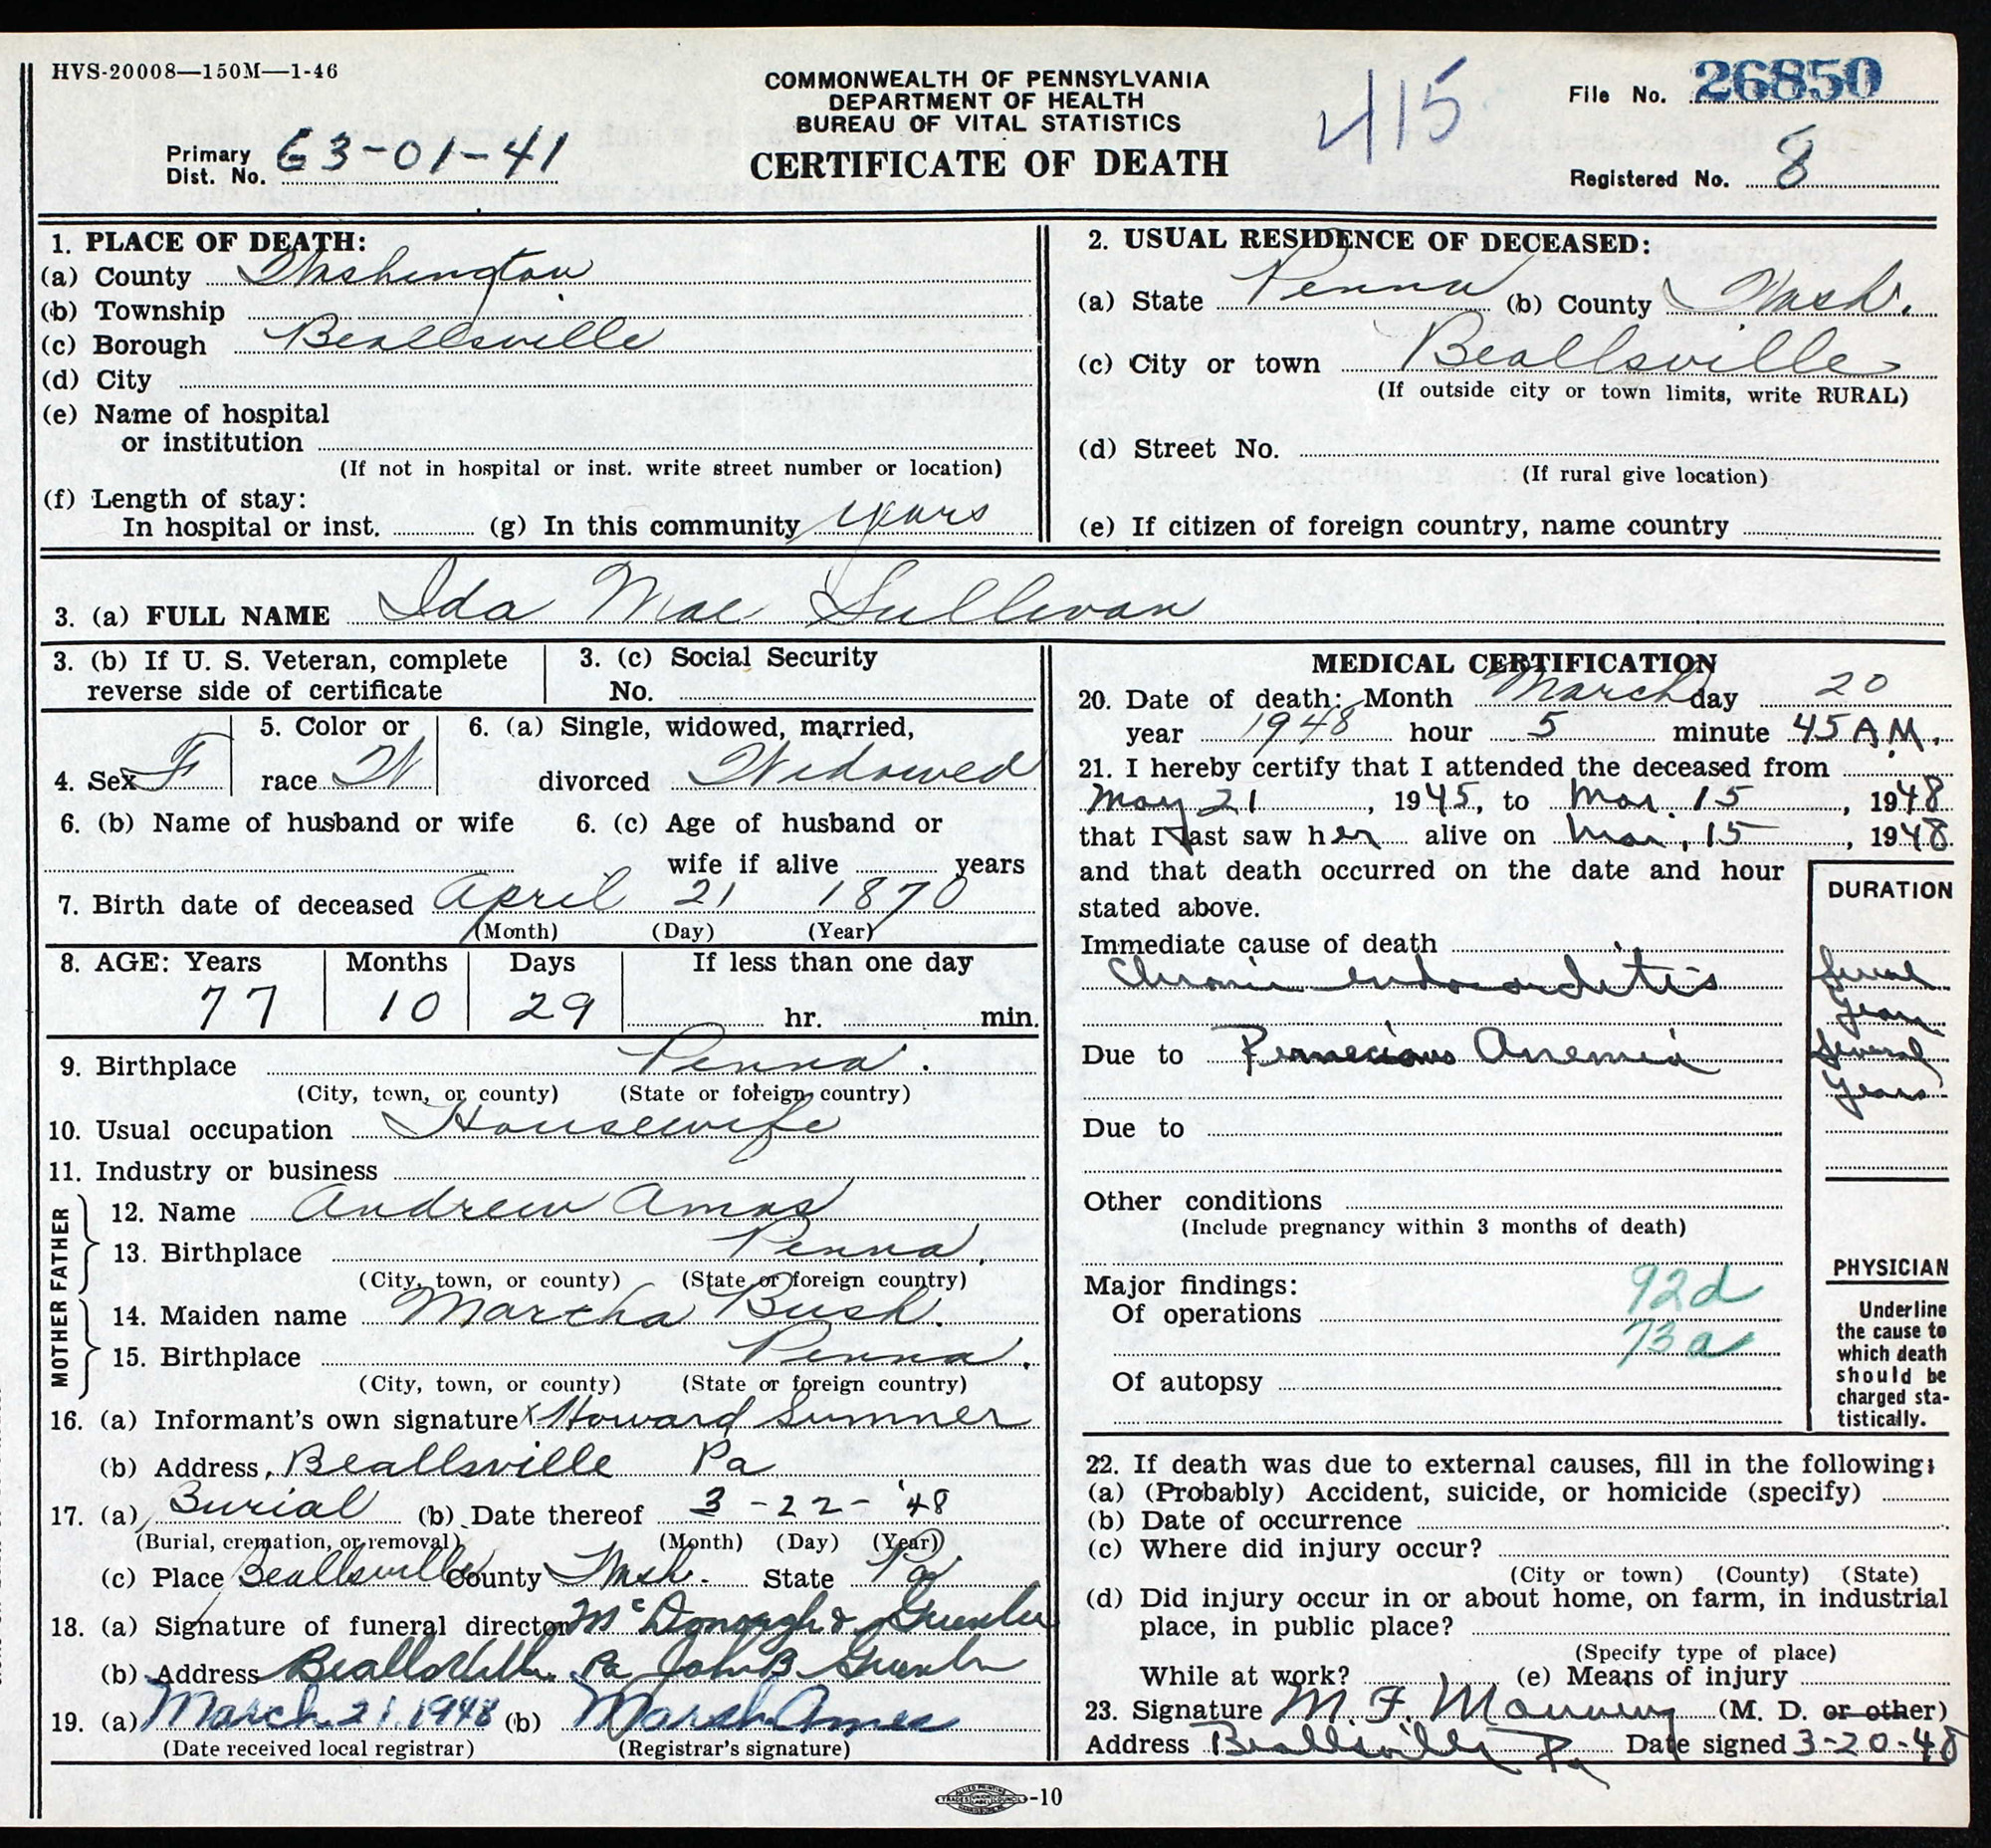 HVS-20008—150M—1-46
COMMONWEALTH OF PENNSYLVANIA
DEPARTMENT OF HEALTH
BUREAU OF VITAL STATISTICS
CERTIFICATE OF DEATH
415
File No. 26850
Primary Dist. No. 63-01-41
Registered No. 8
1. PLACE OF DEATH:
(a) County Washington
(b) Township
(c) Borough Beallsville
(d) City
(e) Name of hospital
or institution
(If not in hospital or inst. write street number or location)
(f) Length of stay:
In hospital or inst. (g) In this community years
2. USUAL RESIDENCE OF DECEASED:
(a) State Penna (b) County Wash.
(c) City or town Beallsville
(If outside city or town limits, write RURAL)
(d) Street No.
(If rural give location)
(e) If citizen of foreign country, name country
3. (a) FULL NAME Ida Mae Sullivan
3. (b) If U. S. Veteran, complete
reverse side of certificate
3. (c) Social Security
No.
4. Sex F
5. Color or
race W
6. (a) Single, widowed, married,
divorced Widowed
6. (b) Name of husband or wife
6. (c) Age of husband or
wife if alive years
7. Birth date of deceased April 21 1870
(Month) (Day) (Year)
8. AGE: Years Months Days If less than one day
77 10 29 hr. min.
9. Birthplace Penna.
(City, town, or county) (State or foreign country)
10. Usual occupation Housewife
11. Industry or business
FATHER
12. Name Andrew Amos
13. Birthplace Penna.
(City, town, or county) (State or foreign country)
MOTHER
14. Maiden name Martha Bush.
15. Birthplace Penna.
(City, town, or county) (State or foreign country)
16. (a) Informant's own signature x Howard Sumner
(b) Address Beallsville Pa
17. (a) Burial (b) Date thereof 3-22-'48
(Burial, cremation, or removal) (Month) (Day) (Year)
(c) Place Beallsville County Wash. State Pa
18. (a) Signature of funeral director McDonough &
(b) Address Beallsville Pa John B
19. (a) March 21, 1948 (b) Marsh Ames
(Date received local registrar) (Registrar's signature)
MEDICAL CERTIFICATION
20. Date of death: Month March day 20
year 1948 hour 5 minute 45 A.M.
21. I hereby certify that I attended the deceased from
May 21, 1945, to Mar. 15, 1948
that I last saw her alive on Mar. 15, 1948
and that death occurred on the date and hour
stated above.
DURATION
Immediate cause of death
Chronic endocarditis Several
Years
Due to Pernecious Anemia Several
Years
Due to
Other conditions
(Include pregnancy within 3 months of death)
Major findings: 92d
Of operations
73a
Of autopsy
PHYSICIAN
Underline
the cause to
which death
should be
charged sta-
tistically.
22. If death was due to external causes, fill in the following:
(a) (Probably) Accident, suicide, or homicide (specify)
(b) Date of occurrence
(c) Where did injury occur?
(City or town) (County) (State)
(d) Did injury occur in or about home, on farm, in industrial
place, in public place?
(Specify type of place)
While at work? (e) Means of injury
23. Signature M. F. Manning (M. D. or other)
Address Beallsville Pa Date signed 3-20-48
-10